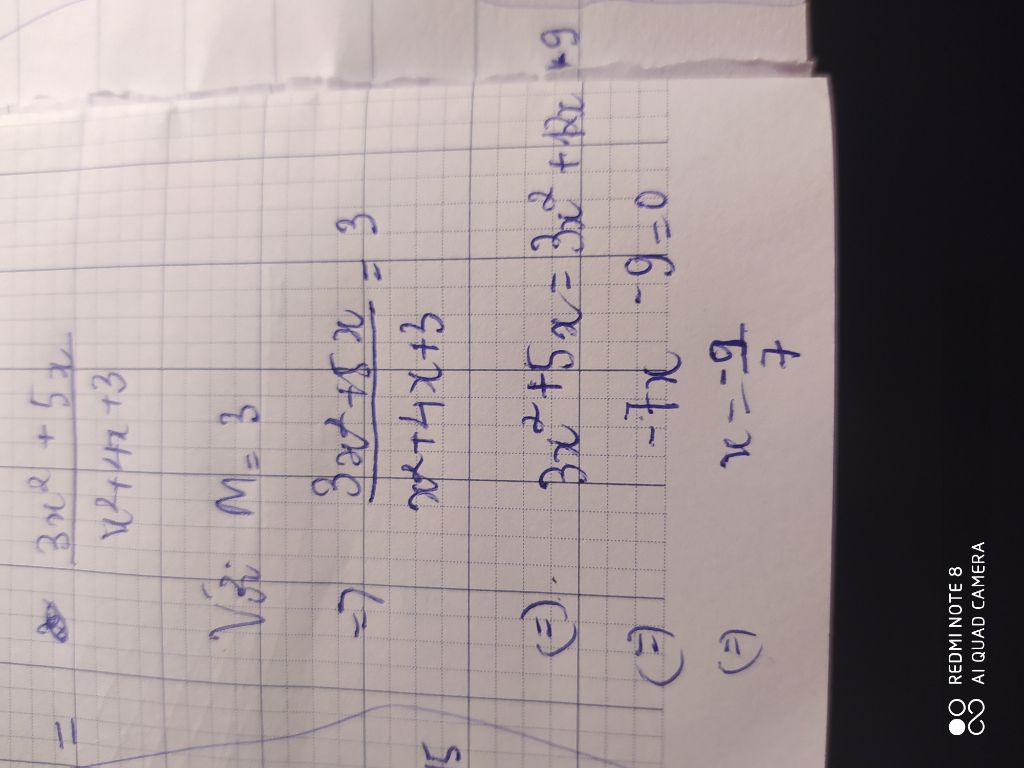 = 3x² + 5x / x²+4x+3
Với M = 3
=> 3x²+5x / x²+4x+3 = 3
(=) 3x²+5x = 3x²+12x+9
(=) -7x -9=0
(=) x = -9/7
15
REDMI NOTE 8
AI QUAD CAMERA